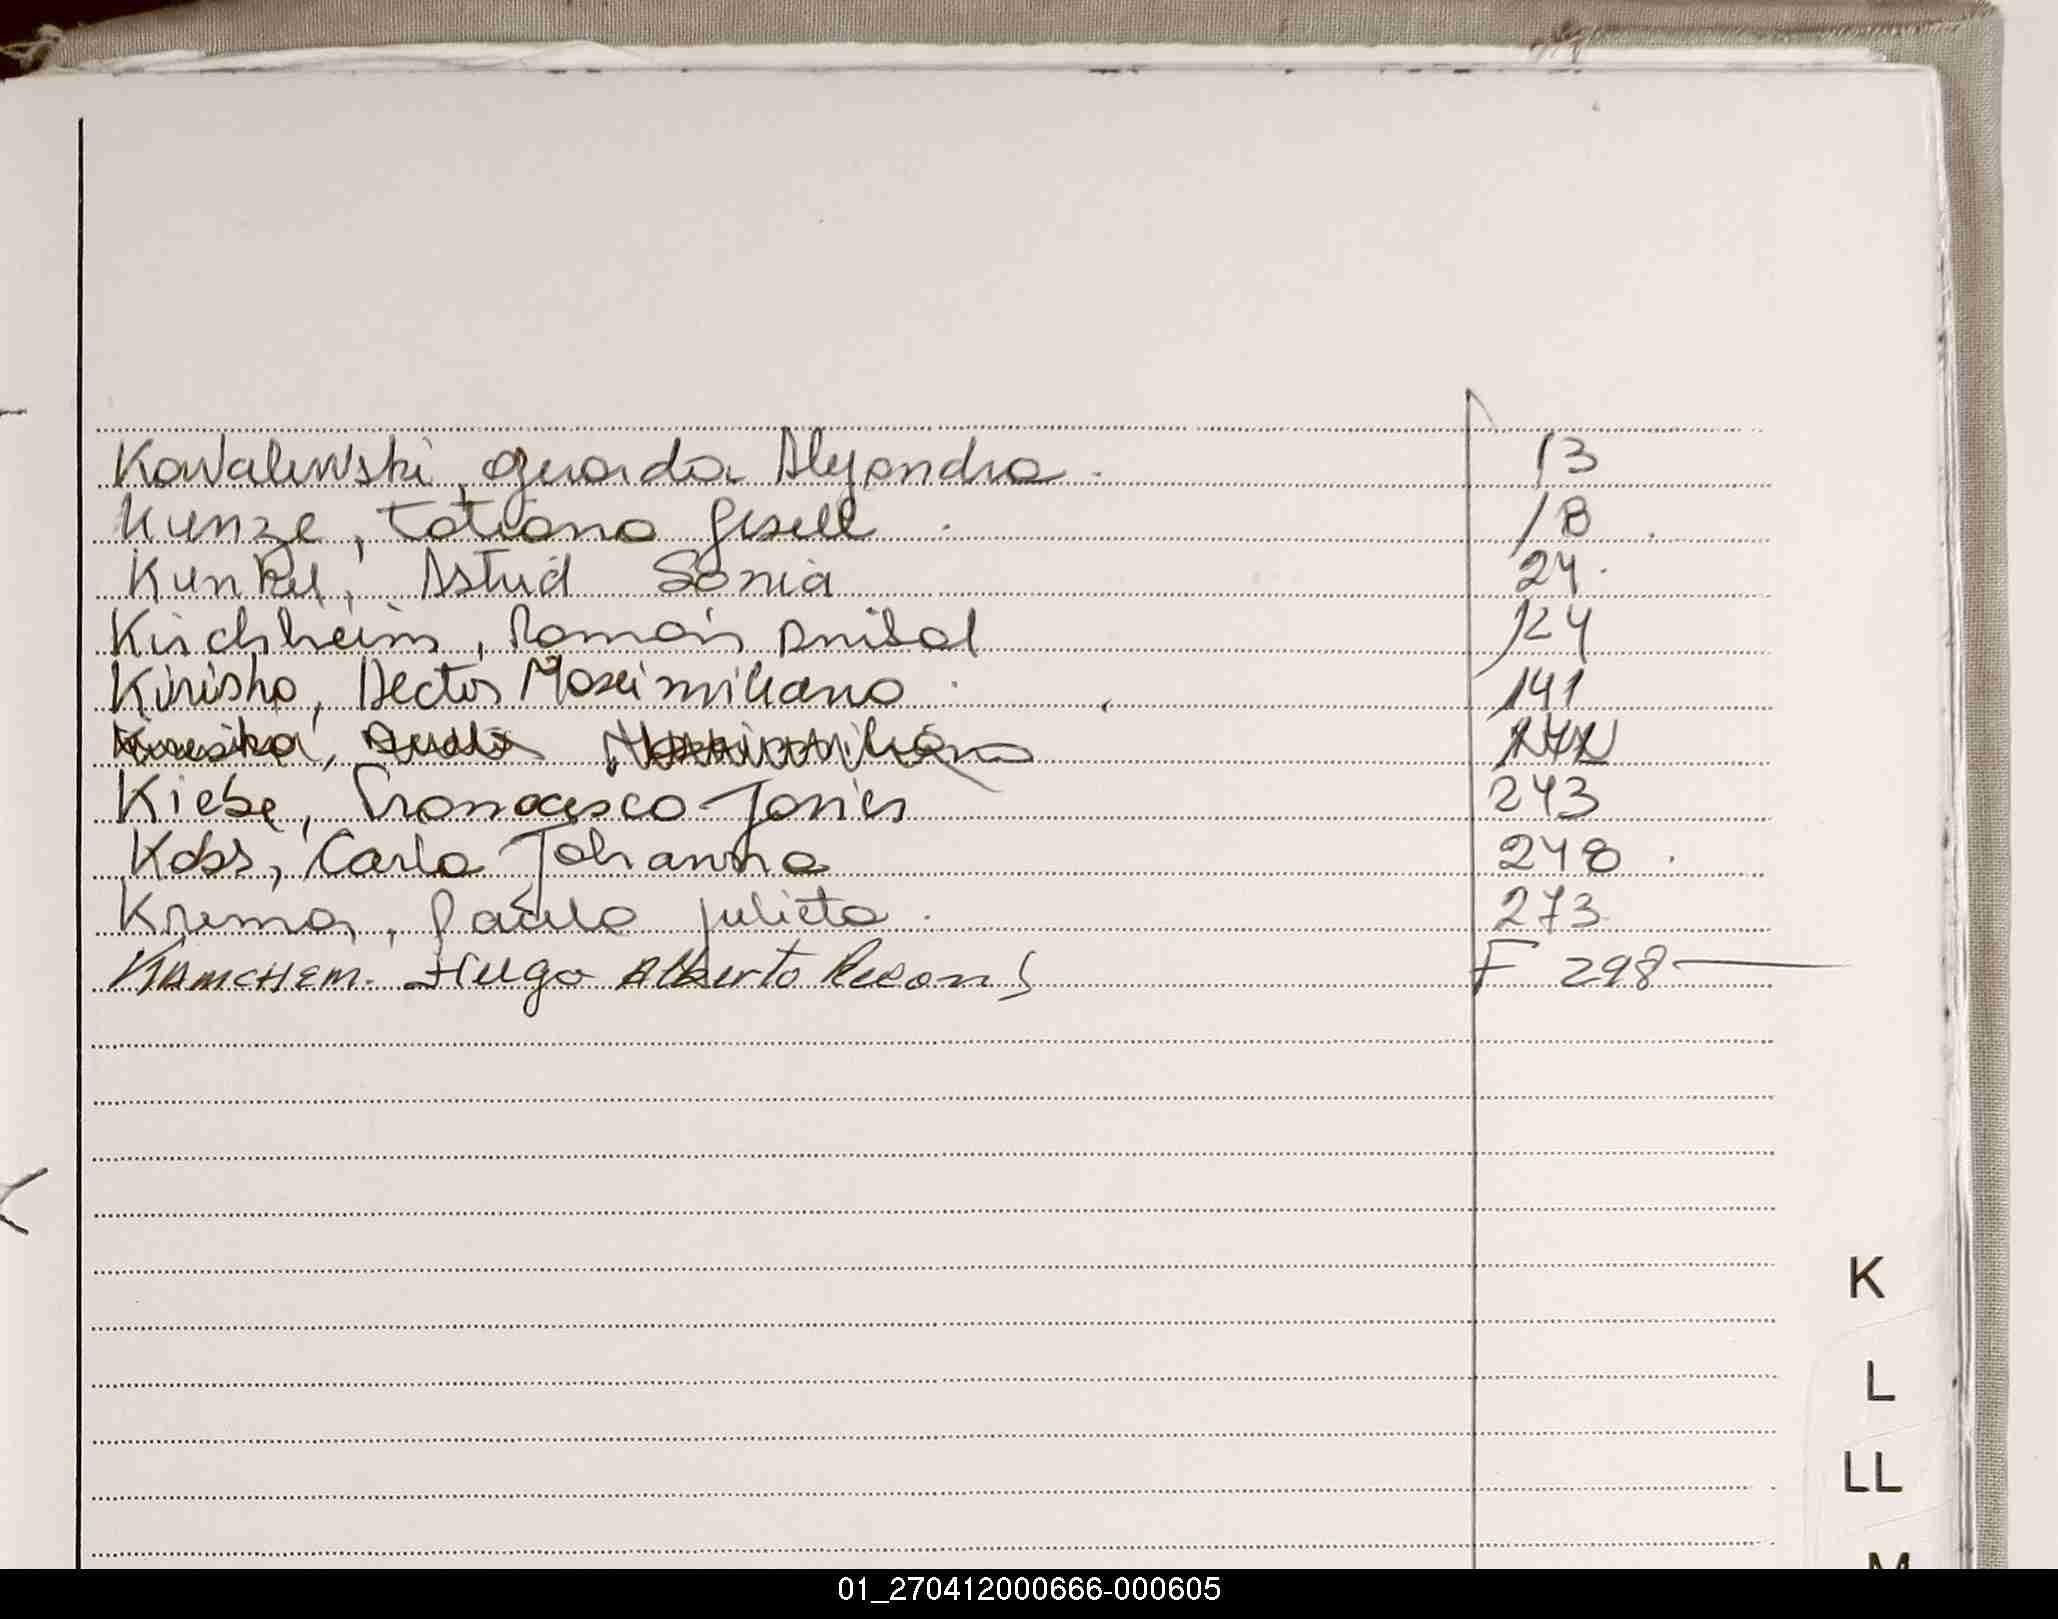 Kowalewski, Gerarda Alejandra. 13
Kunze, Tatiana Gisell. 18
Kunkel, Astrid Sonia 24.
Kirchheim, Román Anibal 124
Kirisho, Hector Maximiliano. 141
Kiebe, Francesco Javier 243
Kobs, Carla Johanna 248.
Krema, Paula Julieta. 273
KAMCHEM. Hugo Alberto F 298
K
L
LL
M
01_270412000666-000605